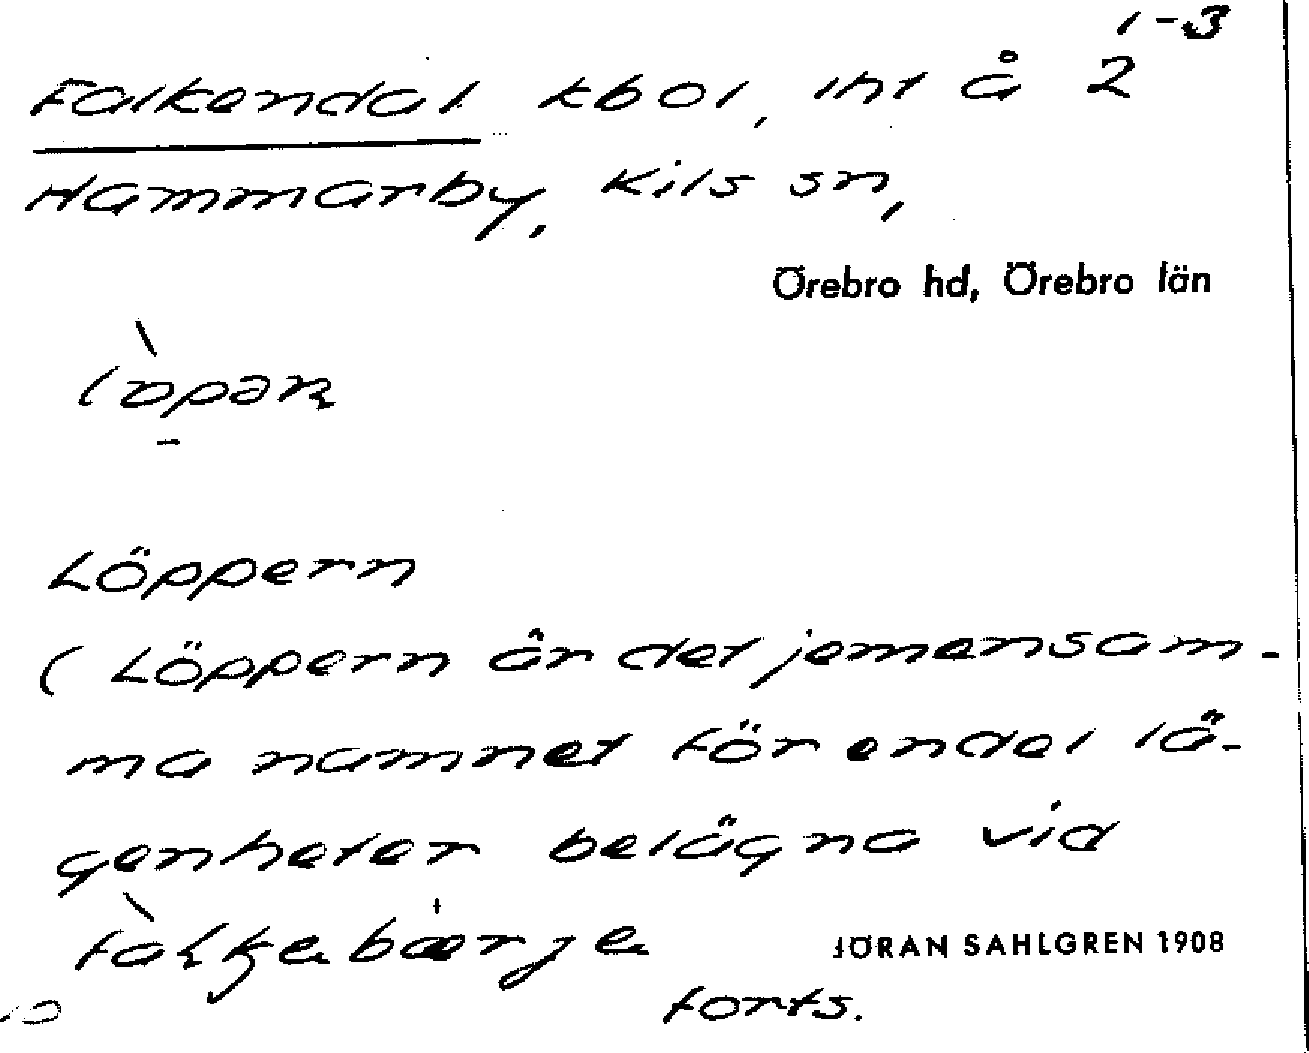 1-3
Falkendal kbol, int å 2
Hammarby, Kils sn,
Örebro hd, Örebro län
Löppern
( Löppern är det jemensam-
ma namnet för en del lä-
genheter belägna vid
JÖRAN SAHLGREN 1908
forts.